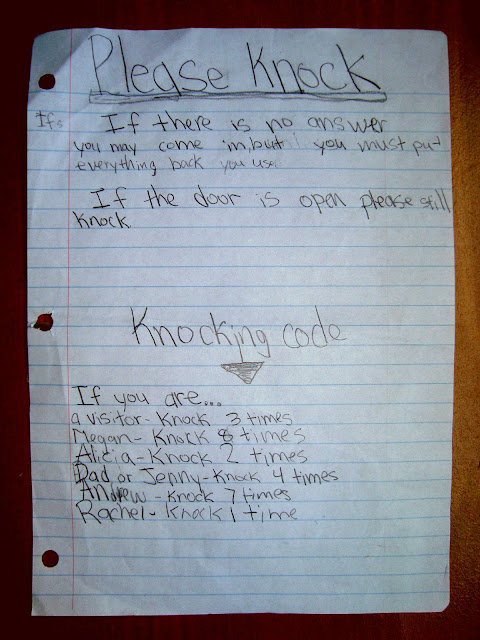 Please Knock
If there is no answer
you may come in, but you must put
everything back you use
If the door is open please still
Knock
Knocking code
If you are...
a visitor - Knock 3 times
Megan - Knock 8 times
Alicia - Knock 2 times
Dad or Jenny - Knock 4 times
Andrew - Knock 7 times
Rachel - Knock 1 time